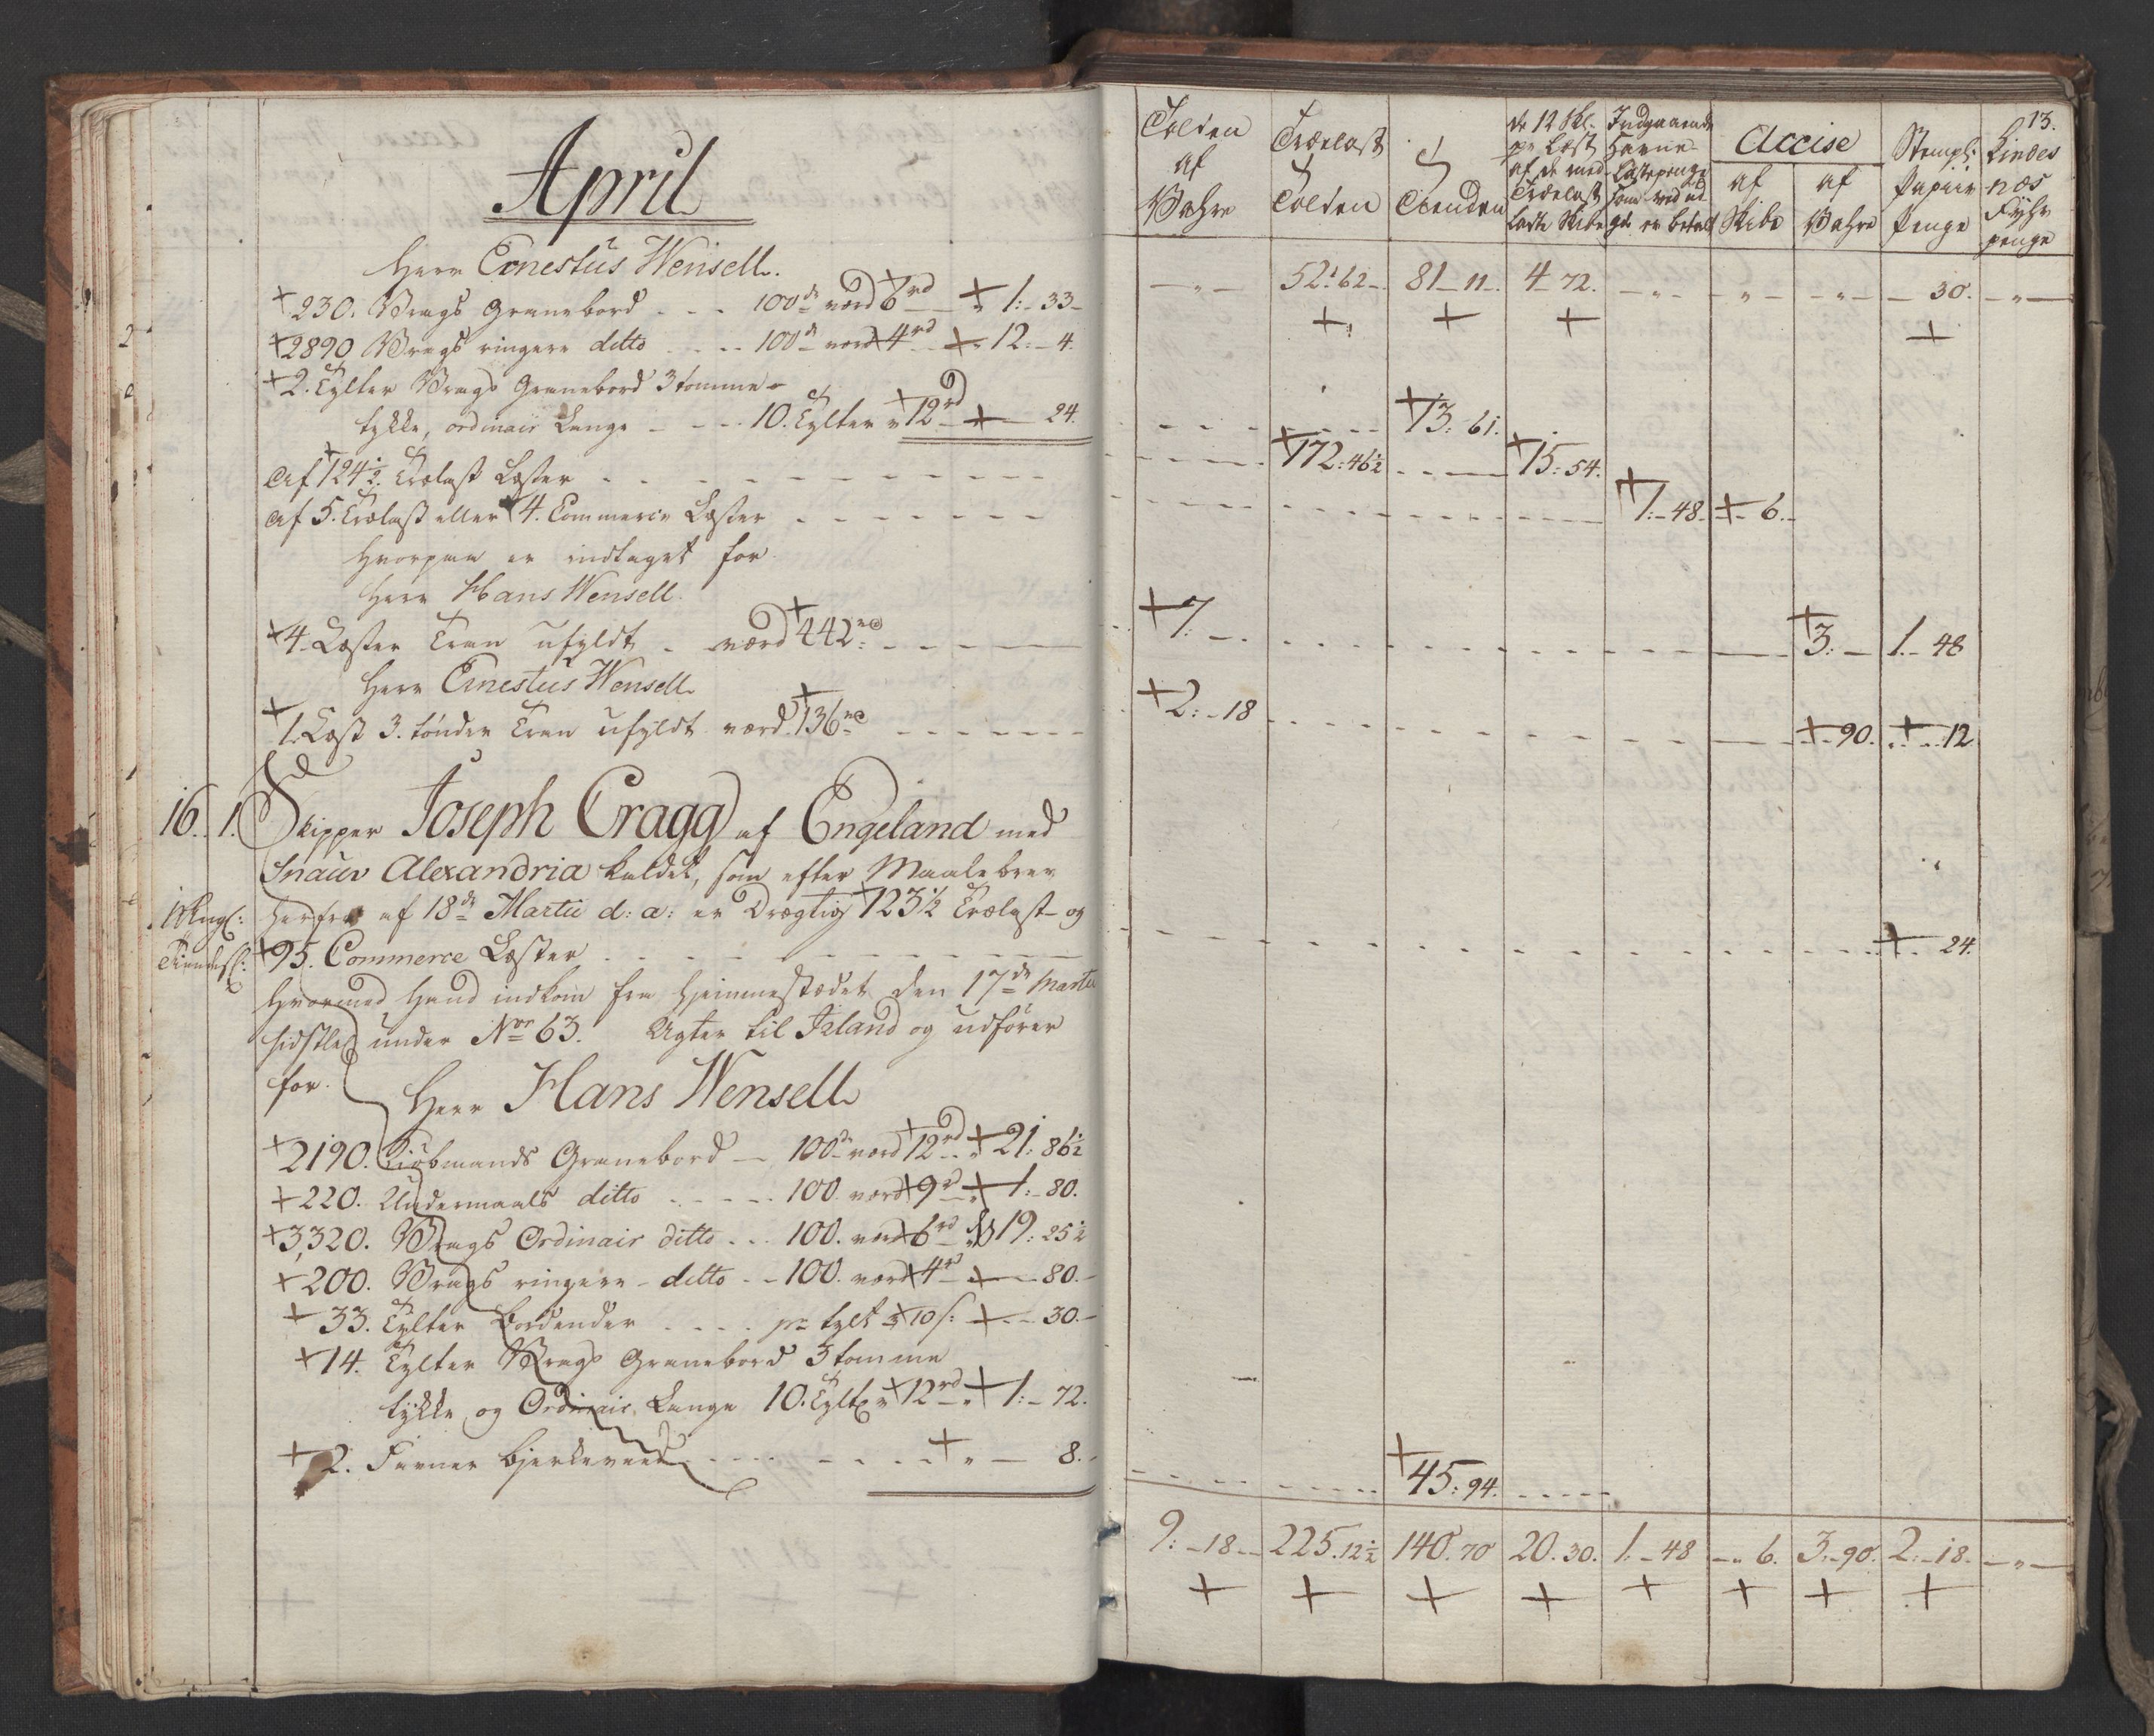 April
Herr Ernestus Wensell.
+230. Wrags Granebord . . . 100de værd +6rd + 1:-33-
+2890 Wrags ringere ditto . . . 100de værd +4rd + 12:-4.
+2. Tylter Wrags Granebord 3 tomme
tykke, ordinair Længe - - - 10. Tylter +12rd + - 24.
Af +124½. Trælast Læster
Af 5. Trælast eller +4. Commerce Læster
hvorpaa er indtaget for
Herr Hans Wensell.
+4. Læster Tran ufyldt . værd +442
Herr Ernestus Wensell
+1. Læst 3. tønder Tran ufyldt værd +136
16. 1. Skipper Joseph Cragg af Engeland med
Snauv Alexandria kaldet, som efter Maalebrev
herfra af 18de Martii d: a: er drægtig +123½ Trælast- og
+95. Commerce Læster
hvormed hand indkom fra hjemmestædet den 17de Martii
sidstl. under No 63. Agter til Irland og udfører
for
Herr Hans Wensell
+2190. Kiøbmands Granebord - 100de værd +12rd + 21:86½
+220. Undermaals ditto . . . . 100. værd +9rd + 1:-80.
+3,320. Wrags Ordinair ditto . . 100. værd +6rd 19:25½
+200. Wrags ringere - ditto - - 100. værd +4rd + - 80.-
+33. Tylter Bordender . . . . pr tylt +10s: + - 30.-
+14. Tylter Wrags Granebord 3 tomme
tykke og Ordinair Længe 10. Tylt +12rd + 1:-72.
+2. Favner Bjerkeveed + - 8.-
13.
Tolden af Wahre
Trælast Tolden
Tienden
de 12 Skl. pr Læst af de med Trælast ladte Skibe
Indgaaende Havne- Lastepenge som ved udg. er betalt
Accise
af Skibe
af Wahre
Stempl: Papiir Penge
Lindes næs Fyhr penge
- " - 52:62- 81-11- 4-72. - " - - " - - " - - 30. - " -
+ + + +
+13:61.
+172:46½ +15:54.
+1:-48. + - 6.-
+7:- +3:- 1.-48
+2:-18 + - 90. + - 12
+ - 24.
+45:94.
9:-18- 225.12½ 140.70 20.30. 1:-48 - " 6. 3:-90. 2:-18. - " -
+ + + + + + + +